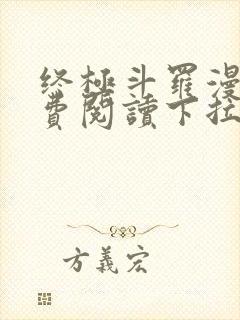 终極斗羅漫
費閱讀下拉
方義宏